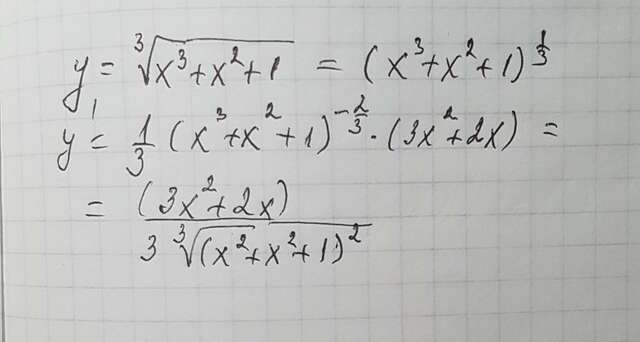 y = ∛(x³+x²+1) = (x³+x²+1)^(1/3)
y' = 1/3 (x³+x²+1)^(-2/3) · (3x²+2x) =
= (3x²+2x) / (3 ∛((x²+x²+1)²))